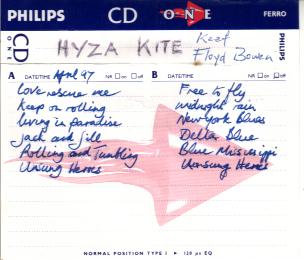 PHILIPS CD ONE FERRO
CD ONE
HYZA KITE
Keef
Floyd Bowen
PHILIPS
A DATE/TIME April 97 NR □ on □ off
Love rescue me
Keep on rolling
living in paradise
Jack and Jill
Rolling and Tumbling
Unsung Heroes
B DATE/TIME NR □ on □ off
Free to fly
midnight rain
New York Blues
Delta Blue
Blue Mississippi
Unsung Heroes
NORMAL POSITION TYPE I ▶ 120 µs EQ